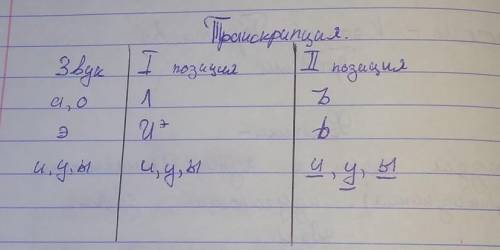 Транскрипция.
Звук I позиция II позиция
а, о Λ ъ
э иэ ь
и, у, ы и, у, ы и, у, ы